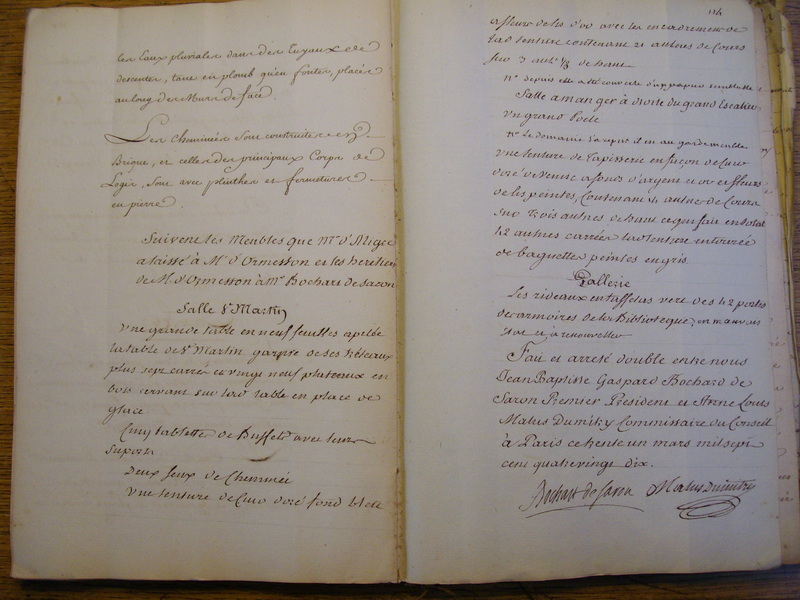 les Eaux pluviales dans des Tuyaux de
descentes, tant en plomb qu'en fontes, placés
au long des Murs de face.
Les Cheminées sont construites en
Brique, et celles des principaux Corps de
Logis, sont avec plinthes et fermetures
en pierre.
Suivent les Meubles que Mr d'Aligre
a laissé à Mr d'Ormesson et les heritiers
de M. d'Ormesson à Mr Bochart de Saron
Salle St Martin
Une grande table en neuf feuilles apelée
la table de St Martin garnie de ses treteaux
plus sept carrés et vingt neuf plateaux en
bois servant sur lad. table en place de
glace
Cinq tablettes de Buffets avec leurs
suports
Deux feux de Cheminée
Une tenture de Cuir doré fond bleu
114
a fleurs de lis d'or avec les encadremens de
lad. tenture contenant 21 autnes de Cours
sur 3 aun. 1/3 de haut
Na depuis elle a été couverte d'un papier
Salle a manger à droite du grand Escalier
Un grand Poele
Na Le domaine l'a repris il en au garde meuble
Une tenture de Tapisserie en façon de Cuir
doré de Venise a fonds d'argent et or et fleurs
de lis peintes, Contenant 14 autnes de Cours
sur trois autnes de haut ce qui fait en total
42 autnes carrées lad. tenture entourée
de baguettes peintes en gris.
Gallerie
Les rideaux en taffetas vert des 42 portes
d'armoires de la Biblioteque, en mauvais
état et à renouveller
Fait et arreté double entre nous
Jean Baptiste Gaspard Bochard de
Saron Premier President et Anne Louis
Malus Dumitry Commissaire du Conseil
à Paris ce trente un mars mil sept
cent quatrevingt dix.
Bochart de Saron Malus Dumitry